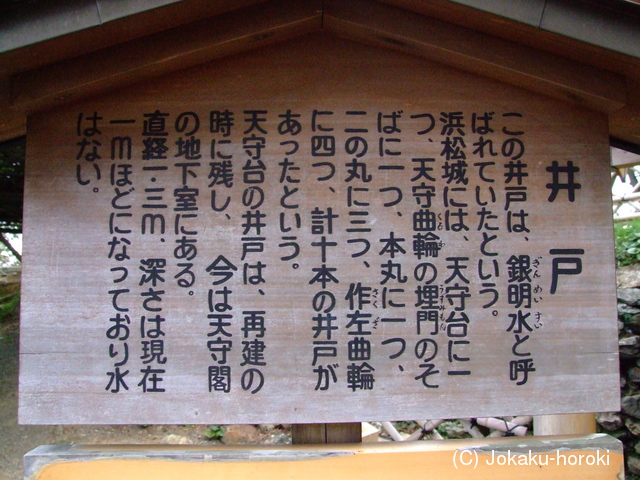 井戸
この井戸は、銀明水と呼
ばれていたという。
浜松城には、天守台に一
つ、天守曲輪の埋門のそ
ばに一つ、本丸に一つ、
二の丸に三つ、作左曲輪
に四つ、計十本の井戸が
あったという。
天守台の井戸は、再建の
時に残し、今は天守閣
の地下室にある。
直経一・三m、深さは現在
一mほどになっており水
はない。
ぎんめいすい
くるわ
うずみもん
さくざ
(C) Jokaku-horoki